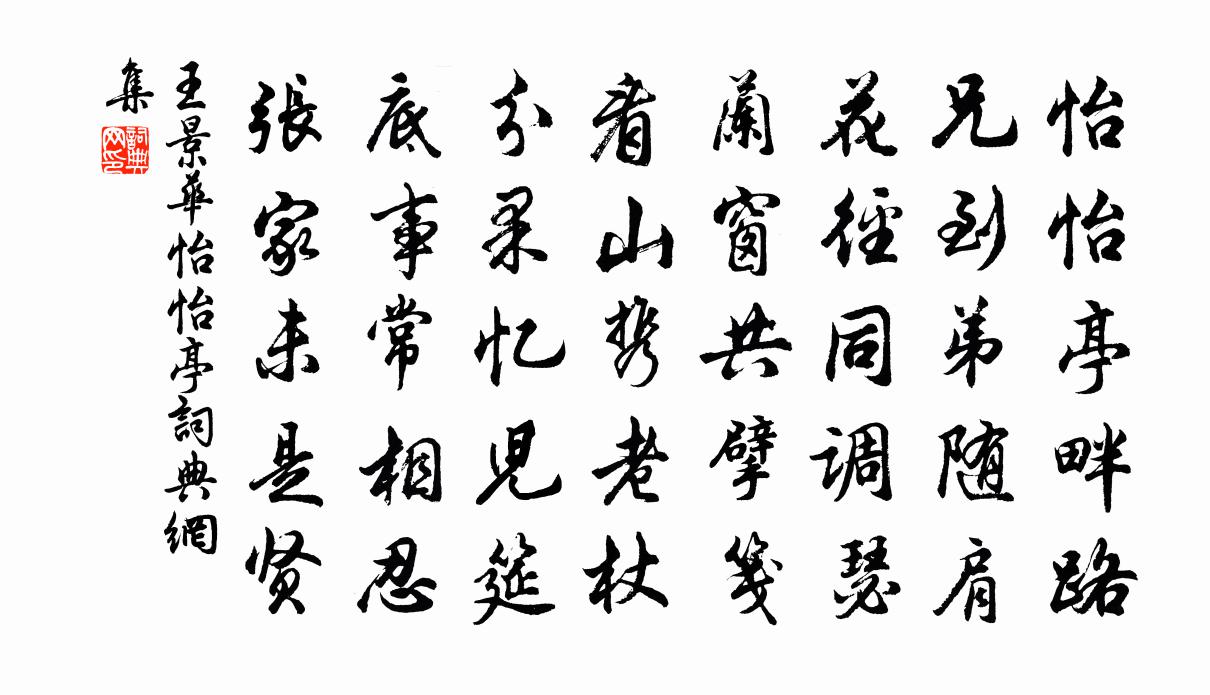 怡怡亭畔路
兄到弟随肩
花徑同調瑟
蘭窗共擘箋
看山携老杖
分果忆児筵
底事常相忍
張家未是贤
王景華怡怡亭詞典網
集
詞典
网印